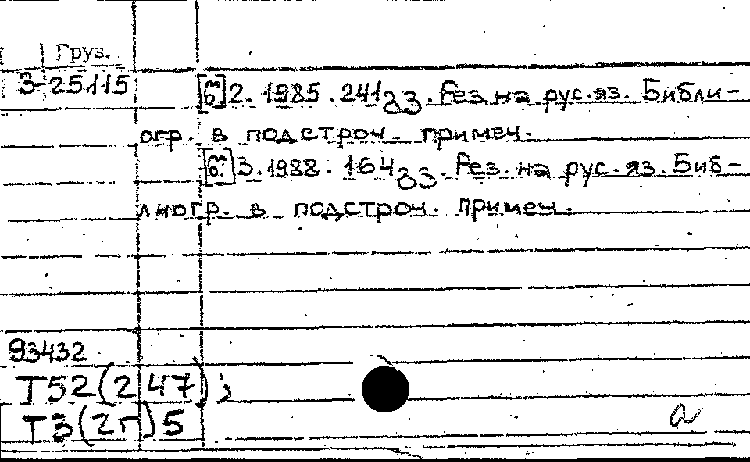 Груз.
3-25115
[თ.] 2. 1985. 241 გვ. Рез. на рус. яз. Библи-
огр. в подстроч. примеч.
3. 1988. 164 გვ. Рез. на рус. яз. Биб-
лиогр. в подстроч. примеч.
93432
Т52(247);
Т3(2Г)5
a